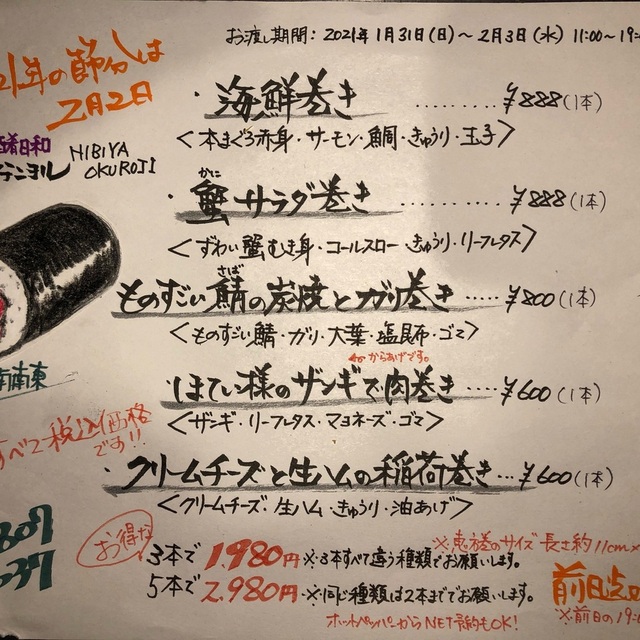 お渡し期間：2021年1月31日(日)～2月3日(水) 11:00～19:
21年の節分は
2月2日
酒肴日和
アテニヨル
HIBIYA
OKUROJI
・海鮮巻き ......... ¥888(1本)
<本まぐろ赤身・サーモン・鯛・きゅうり・玉子>
かに
・蟹サラダ巻き .......... ¥888(1本)
<ずわい蟹むき身・コールスロー・きゅうり・リーフレタス>
さば
ものすごい鯖の炭焼とガリ巻き ..... ¥800(1本)
<ものすごい鯖・ガリ・大葉・塩昆布・ゴマ>
からあげです。
・ほてい様のザンギで肉巻き .... ¥600(1本)
<ザンギ・リーフレタス・マヨネーズ・ゴマ>
・クリームチーズと生ハムの稲荷巻き ... ¥600(1本)
<クリームチーズ・生ハム・きゅうり・油あげ>
南南東
すべて税込価格
です!!
お得な
3本で 1.980円 ※3本すべて違う種類でお願いします。
5本で 2.980円 ※同じ種類は2本まででお願いします。
※恵方巻のサイズ 長さ約11cm×
ホットペッパーからNET予約もOK!
前日
※前日の19: